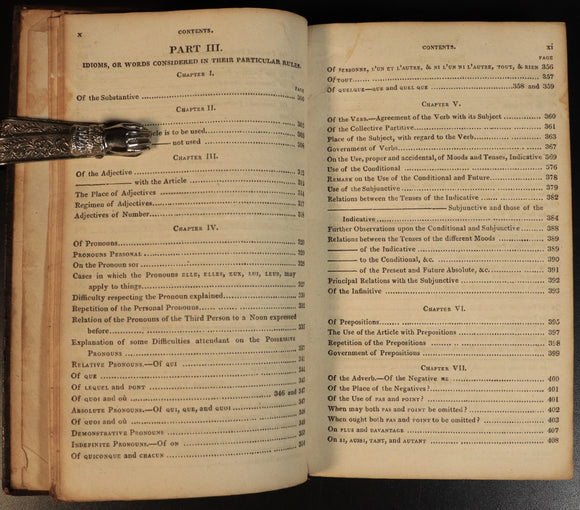 x CONTENTS.
PART III.
IDIOMS, OR WORDS CONSIDERED IN THEIR PARTICULAR RULES.
CHAPTER I.
PAGE
Of the Substantive 300
CHAPTER II.
302
cle is to be used
not used 308
CHAPTER III.
Of the Adjective 312
——— with the Article
The Place of Adjectives 314
Regimen of Adjectives 317
Adjectives of Number 318
CHAPTER IV.
Of Pronouns
PRONOUNS PERSONAL
On the PRONOUN SOI
Cases in which the PRONOUNS ELLE, ELLES, EUX, LUI, LEUR, may
apply to things 327
Difficulty respecting the Pronoun explained
Repetition of the Personal Pronouns
Relation of the Pronouns of the Third Person to a Noun expressed
before 335
Explanation of some Difficulties attendant on the POSSESSIVE
PRONOUNS 337
RELATIVE PRONOUNS.—Of QUI
Of QUE
Of LEQUEL and DONT 345
Of QUOI and OÙ 346 and 347
ABSOLUTE PRONOUNS.—Of QUI, QUE, and QUOI
Of QUOI and OÙ
DEMONSTRATIVE PRONOUNS
INDEFINITE PRONOUNS.—Of ON
Of QUICONQUE and CHACUN 354
CONTENTS. xi
PAGE
Of PERSONNE, L'UN ET L'AUTRE, & NI L'UN NI L'AUTRE, TOUT, & RIEN 356
Of TOUT 357
Of QUELQUE—QUE and QUEL QUE 358 and 359
CHAPTER V.
Of the VERB.—Agreement of the Verb with its Subject 360
Of the Collective Partitive 361
Place of the Subject, with regard to the Verb 363
Government of Verbs 367
On the Use, proper and accidental, of Moods and Tenses, Indicative 369
Use of the Conditional 376
REMARK on the Use of the Conditional and Future 378
Use of the Subjunctive 379
Relations between the Tenses of the Indicative 382
——— Subjunctive and those of the
Indicative 384
Further Observations upon the Conditional and Subjunctive 388
Relations between the Tenses of the different Moods 389
——— of the Indicative 389
——— to the Conditional, &c. 390
——— of the Present and Future Absolute, &c. 391
Principal Relations with the Subjunctive 392
Of the Infinitive 393
CHAPTER VI.
Of Prepositions 395
The Use of the Article with Prepositions 397
Repetition of the Prepositions 398
Government of Prepositions 399
CHAPTER VII.
Of the Adverb.—Of the Negative NE 400
Of the Place of the Negatives? 401
Of the Use of PAS and POINT? 401
When may both PAS and POINT be omitted? 402
When ought both PAS and POINT to be omitted? 403
On PLUS and DAVANTAGE 407
On SI, AUSSI, TANT, and AUTANT 408